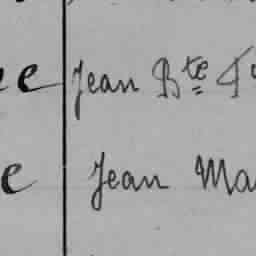 e Jean Bte
e Jean Ma